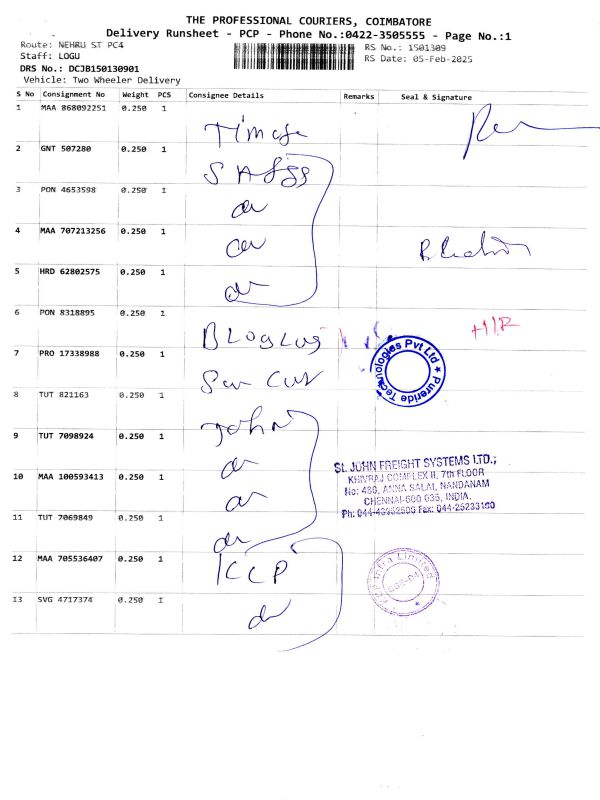 THE PROFESSIONAL COURIERS, COIMBATORE
Delivery Runsheet - PCP - Phone No.:0422-3505555 - Page No.:1
Route: NEHRU ST PC4
RS No.: 1501309
Staff: LOGU
RS Date: 05-Feb-2025
DRS No.: DCJB150130901
Vehicle: Two Wheeler Delivery
S No Consignment No Weight PCS Consignee Details Remarks Seal & Signature
1 MAA 868092251 0.250 1
2 GNT 507280 0.250 1
3 PON 4653598 0.250 1
4 MAA 707213256 0.250 1
5 HRD 62802575 0.250 1
6 PON 8318895 0.250 1
7 PRO 17338988 0.250 1
Technologies Pvt Ltd ★ Pureride
8 TUT 821163 0.250 1
9 TUT 7098924 0.250 1 John
ST. JOHN FREIGHT SYSTEMS LTD.,
KHIVRAJ COMPLEX II, 7th FLOOR
No: 480, ANNA SALAI, NANDANAM
CHENNAI-600 035, INDIA.
10 MAA 100593413 0.250 1
11 TUT 7069849 0.250 1
12 MAA 705536407 0.250 1 KCCP
Infra Limited
13 SVG 4717374 0.250 1